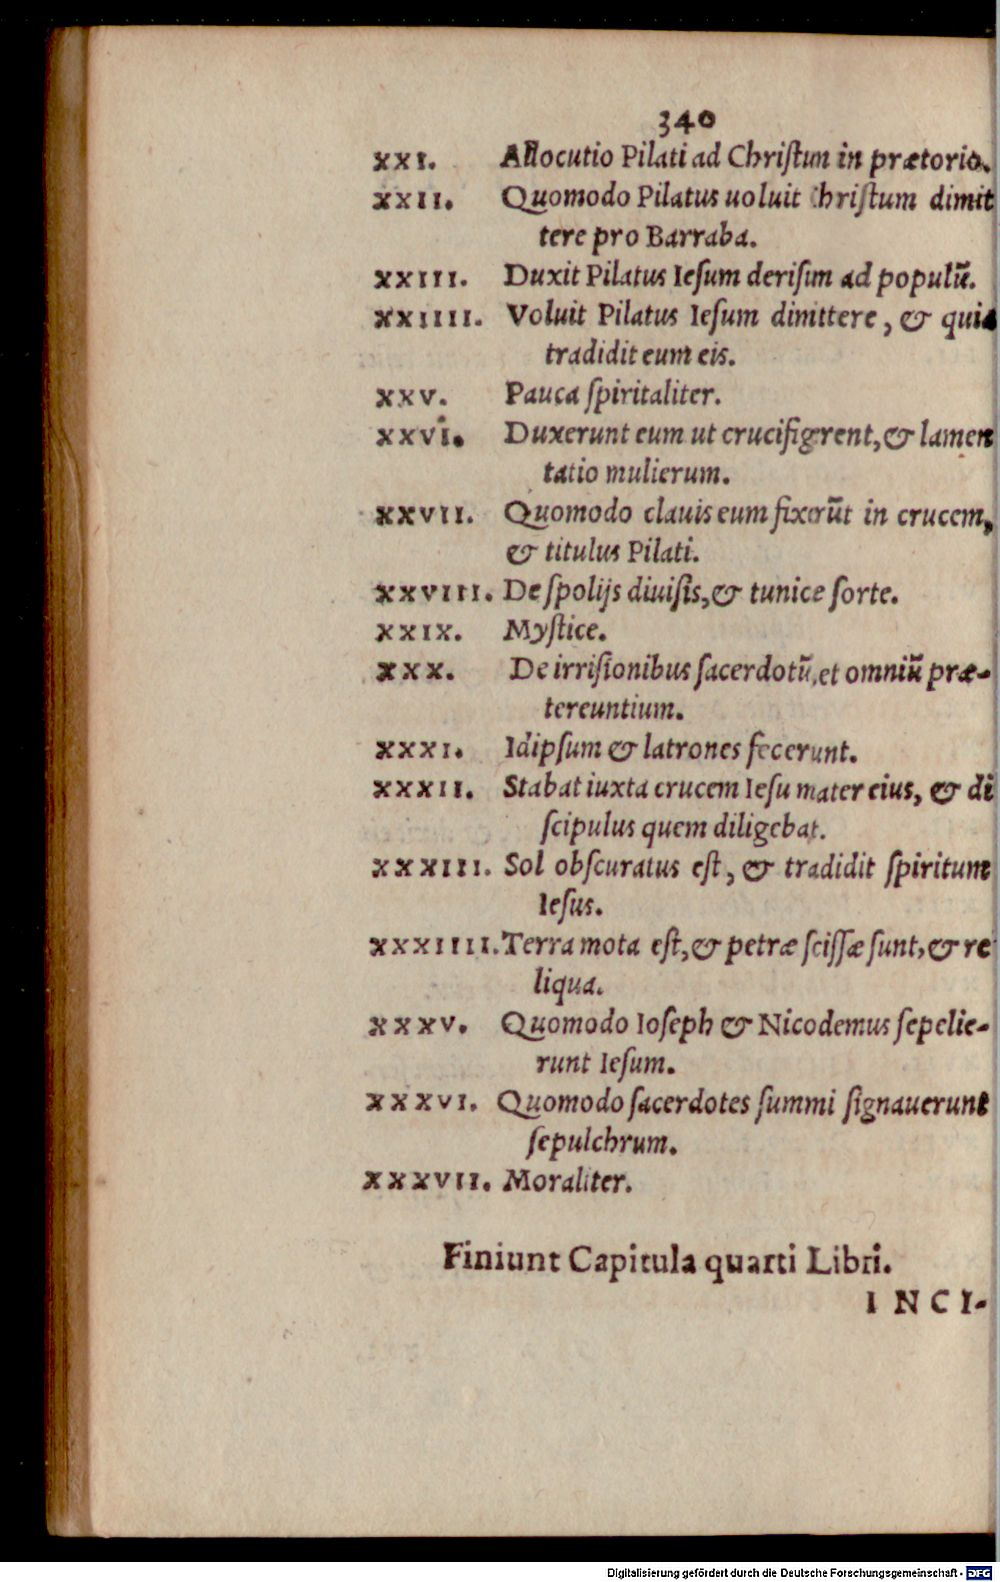 340
XXI. Allocutio Pilati ad Chriſtum in prætorio.
XXII. Quomodo Pilatus uoluit Chriſtum dimit
tere pro Barraba.
XXIII. Duxit Pilatus Ieſum deriſum ad populū.
XXIIII. Voluit Pilatus Ieſum dimittere, & quia
tradidit eum eis.
XXV. Pauca ſpiritaliter.
XXVI. Duxerunt eum ut crucifigerent, & lamen
tatio mulierum.
XXVII. Quomodo clauis eum fixerūt in crucem,
& titulus Pilati.
XXVIII. De ſpolijs diuiſis, & tunice ſorte.
XXIX. Myſtice.
XXX. De irriſionibus ſacerdotū, et omniū præ-
tereuntium.
XXXI. Idipſum & latrones fecerunt.
XXXII. Stabat iuxta crucem Ieſu mater eius, & di
ſcipulus quem diligebat.
XXXIII. Sol obſcuratus eſt, & tradidit ſpiritum
Ieſus.
XXXIIII. Terra mota eſt, & petræ ſciſſæ ſunt, & re
liqua.
XXXV. Quomodo Ioſeph & Nicodemus ſepelie-
runt Ieſum.
XXXVI. Quomodo ſacerdotes ſummi ſignauerunt
ſepulchrum.
XXXVII. Moraliter.
Finiunt Capitula quarti Libri.
INCI-
Digitalisierung gefördert durch die Deutsche Forschungsgemeinschaft - DFG